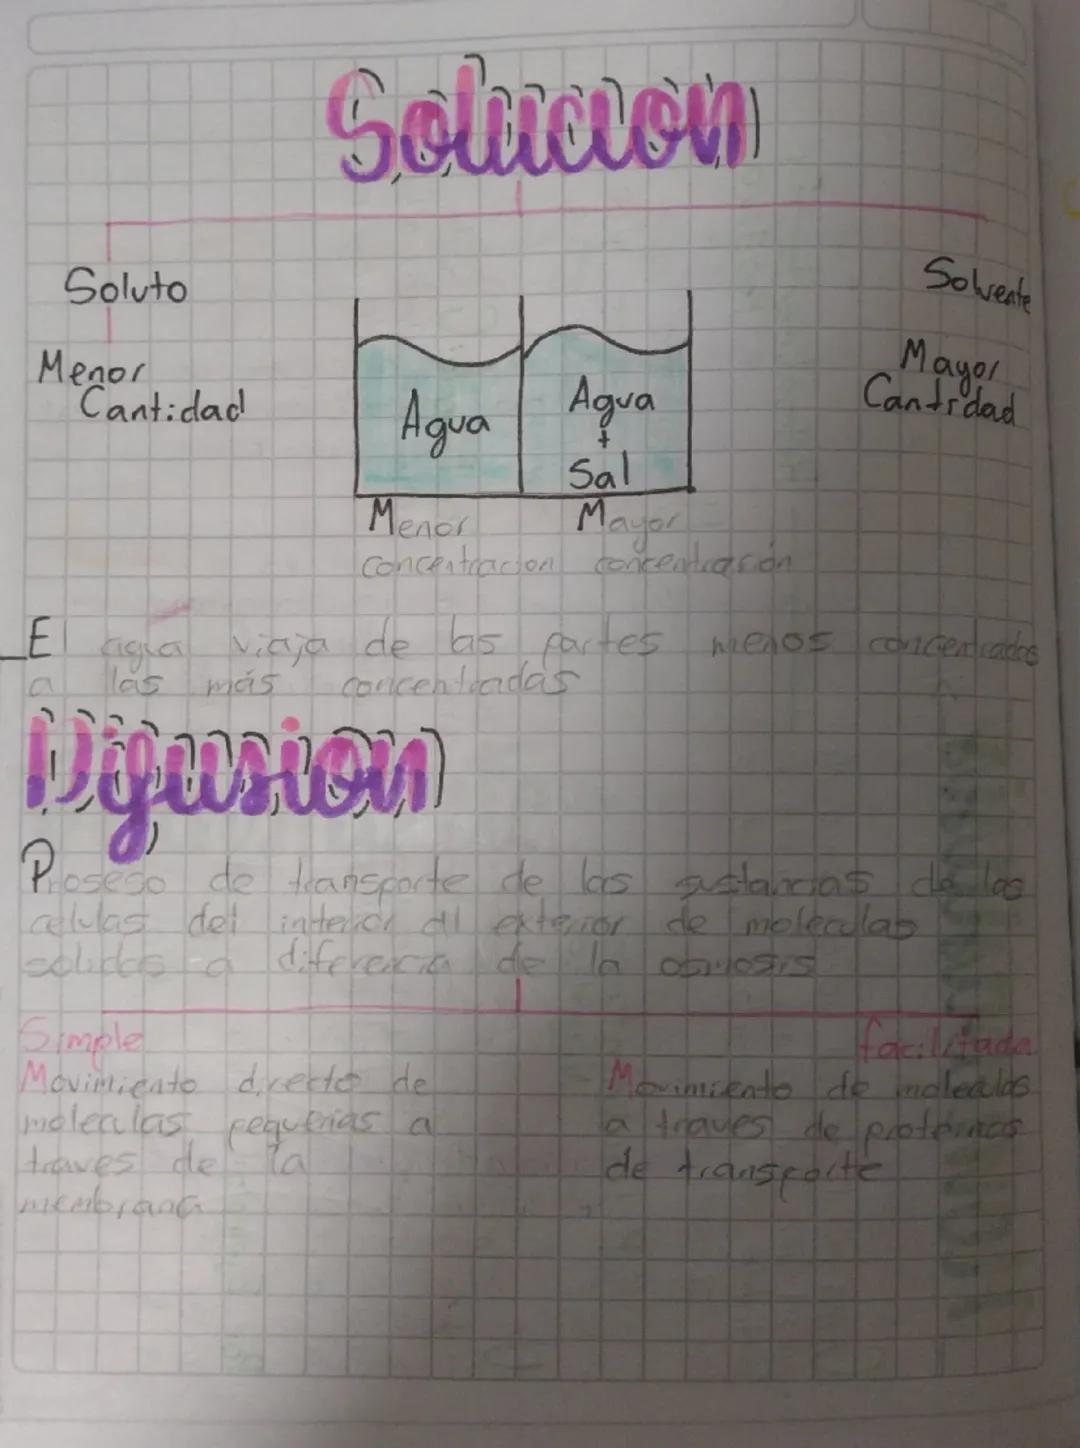 Solucion
Soluto
Solvente
Menor
Cantidad
Mayor
Cantidad
Agua
Agua
+
Sal
Menor
concentracion
Mayor
concentración
El agua viaja de las partes menos concentradas
a las más concentradas
Difusion
Proseso de transporte de las sustancias de las
celulas del interior al exterior de moleculas
solidas a diferencia de la osmosis
Simple
Movimiento directo de
moleculas pequeñas a
traves de la
membrana
facilitada
Movimiento de moleculas
a traves de proteinas
de transporte